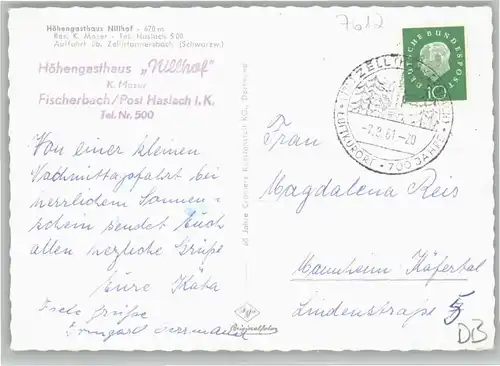 Höhengasthaus Nillhof - 670 m
Bes. K. Moser - Tel. Haslach 500
Auffahrt üb. Zell-Unterharmersbach (Schwarzw.)
Höhengasthaus „Nillhof"
K. Moser
Fischerbach/Post Haslach i. K.
Tel. Nr. 500
Von einer kleinen
Nachmittagsfahrt bei
herrlichem Sonnen=
schein sendet Euch
allen herzliche Grüße
Eure Käta
Viele Grüße
Irmgard
Cramers Kunstanstalt KG., Dortmund
Agfa
Originalfoto
7612
DEUTSCHE BUNDESPOST
10
ZELL
-7.9.61-20
LUFTKURORT · 700 JAHRE
Frau
Magdalena Reis
Mannheim Käfertal
Lindenstraße 5
DB